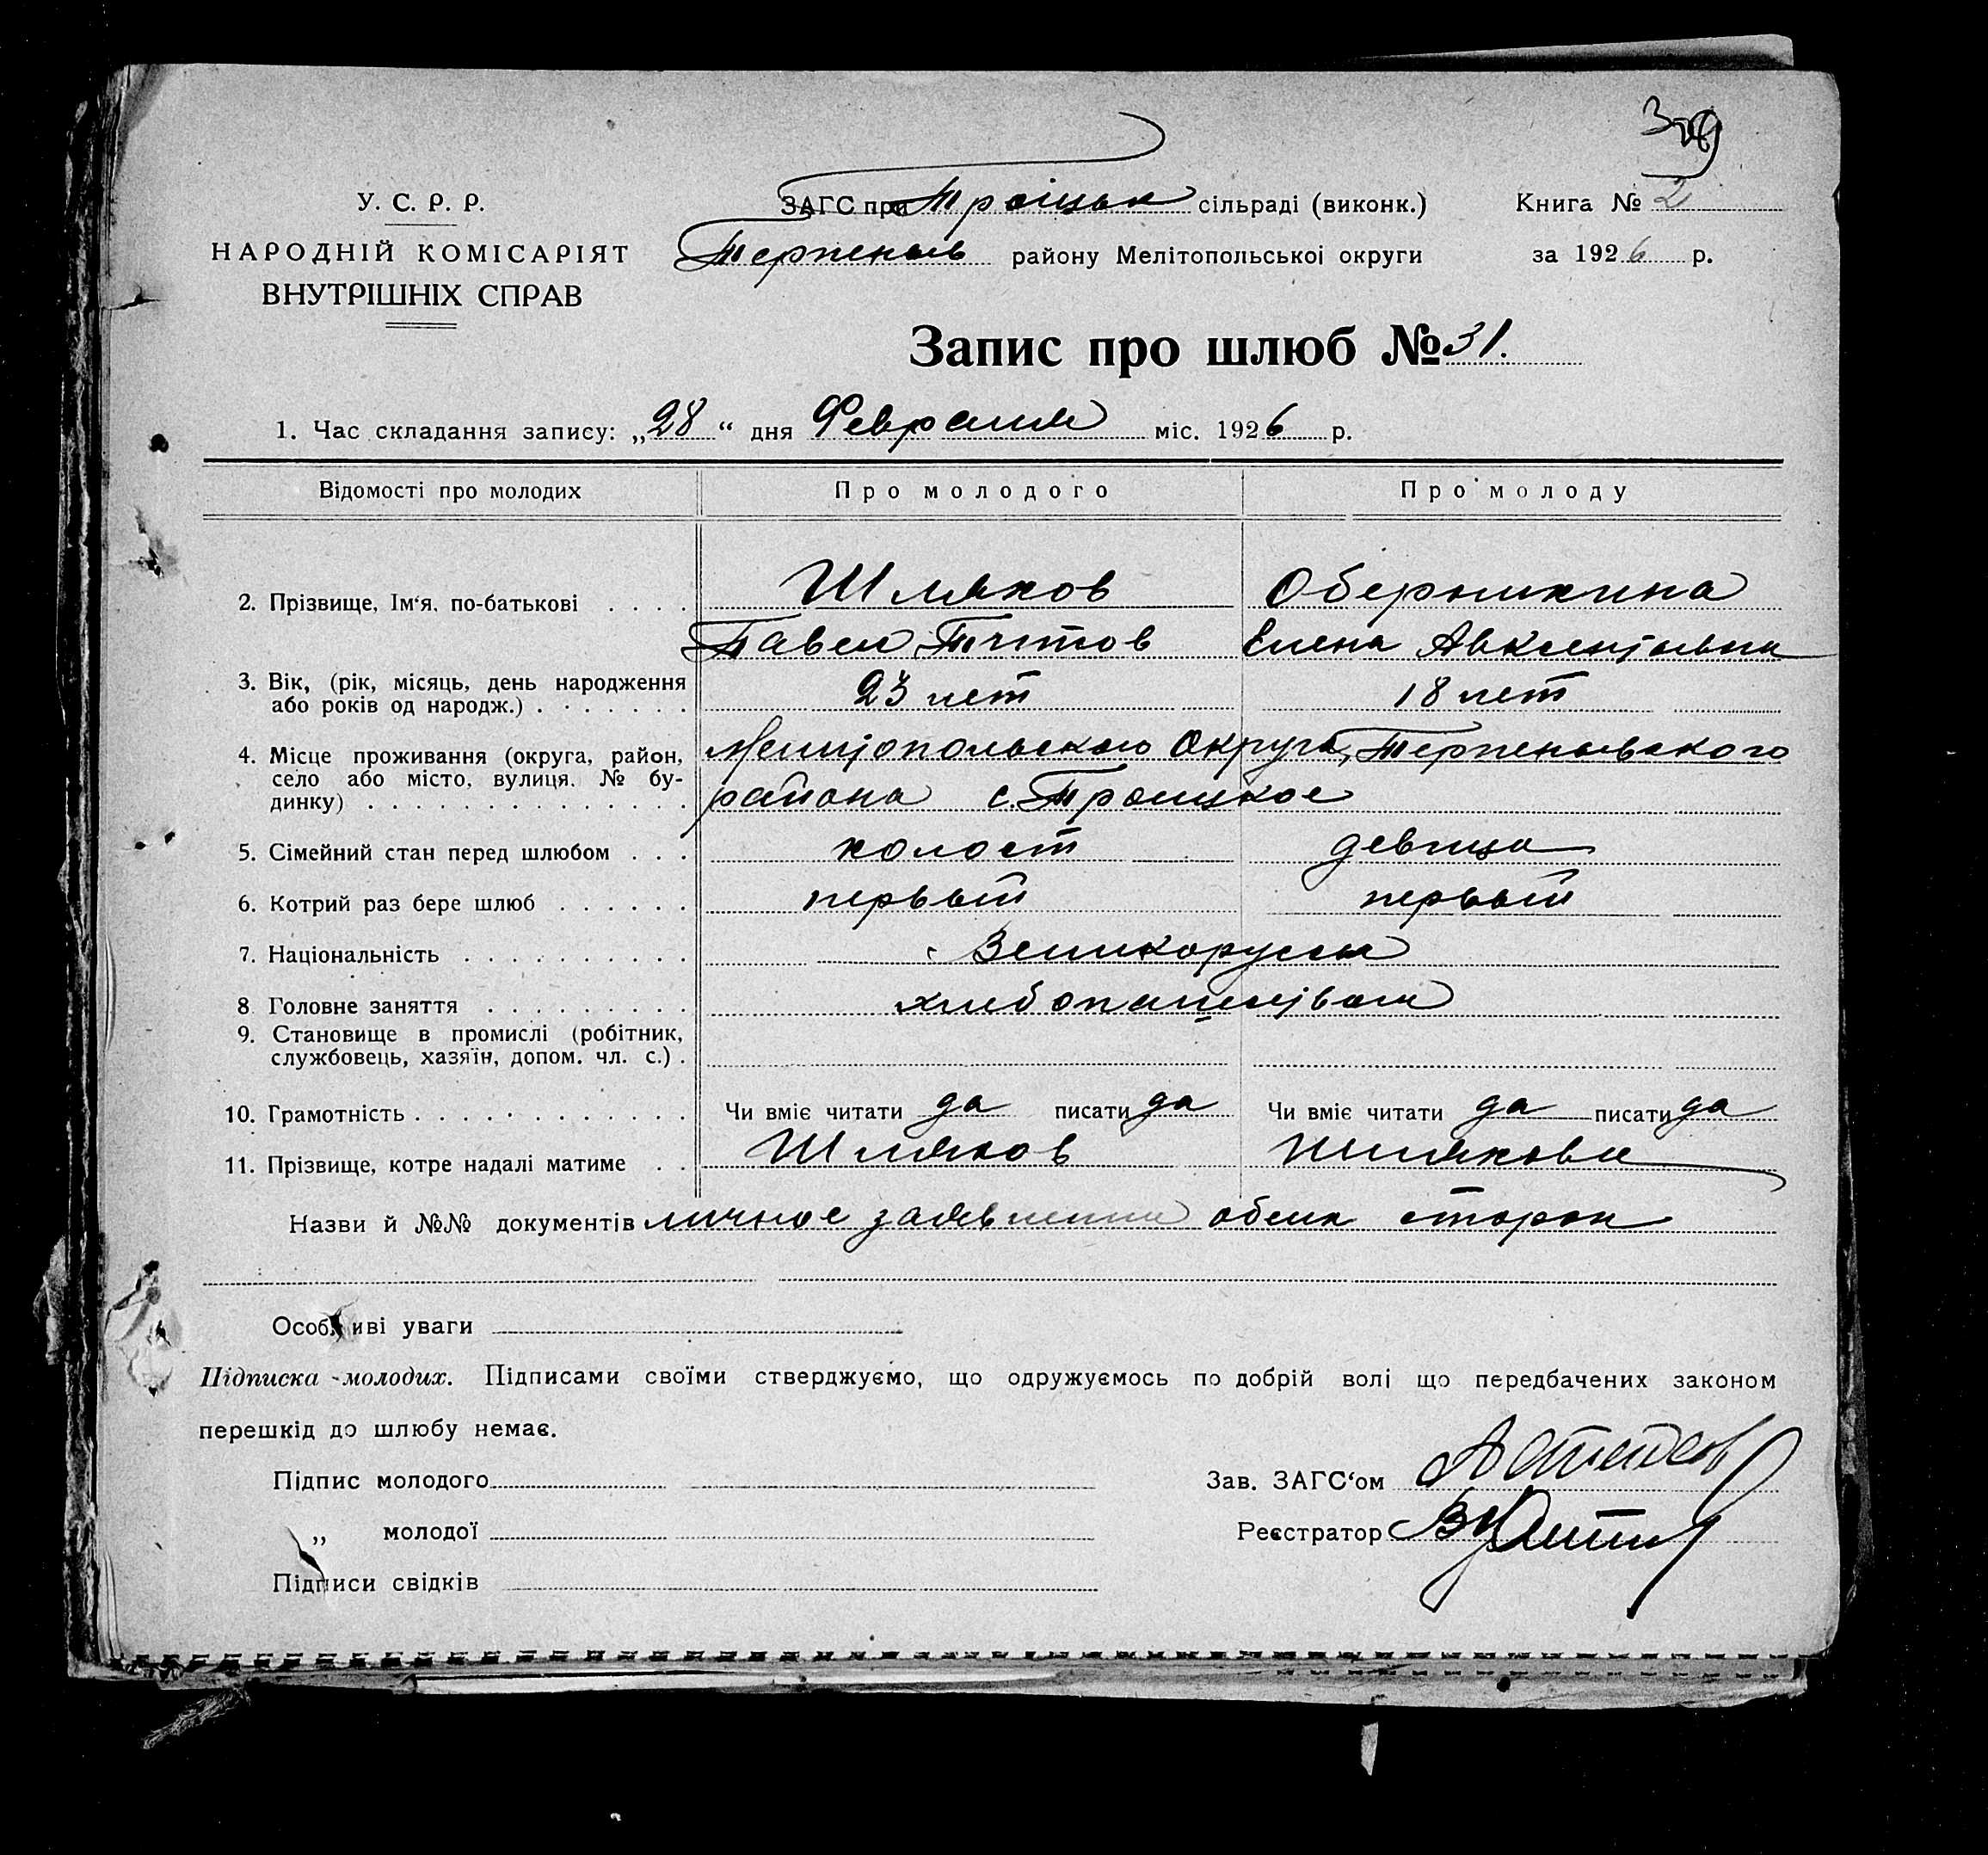 У. С. Р. Р.
НАРОДНІЙ КОМІСАРІЯТ
ВНУТРІШНІХ СПРАВ
ЗАГС при Троіцьк сільраді (виконк.)
Терпеньев району Мелітопольськоі округи
Книга № 2
за 1926 р.
Запис про шлюб № 31.
1. Час складання запису: „28“ дня Февраля міс. 1926 р.
Відомості про молодих Про молодого Про молоду
2. Прізвище, Ім‘я, по-батькові . . . . Шляхов
Павел Титов Елена Авксентьевна
3. Вік, (рік, місяць, день народження
або років од народж.) . . . . . . . 23 лет 18 лет
4. Місце проживання (округа, район, Мелитопольского Округа, Терпеньевского
село або місто, вулиця. № бу-
динку) . . . . . . . . . . . . . . района с. Троицкое
5. Сімейний стан перед шлюбом . . . холост девица
6. Котрий раз бере шлюб . . . . . . первый первый
7. Національність . . . . . . . . . . Великоруссы
8 Головне заняття . . . . . . . . . хлебопашество
9. Становище в промислі (робітник,
службовець, хазяїн, допом. чл. с.) .
10. Грамотність . . . . . . . . . . . . Чи вміє читати да писати да Чи вміє читати да писати да
11. Прізвище, котре надалі матиме . . Шляхов Шляхова
Назви й №№ документів личное заявление обеих сторон
Особливі уваги
Підписка молодих. Підписами своїми стверджуємо, що одружуємось по добрій волі що передбачених законом
перешкід до шлюбу немає.
Підпис молодого
Зав. ЗАГС‘ом
„ молодої
Реєстратор
Підписи свідків